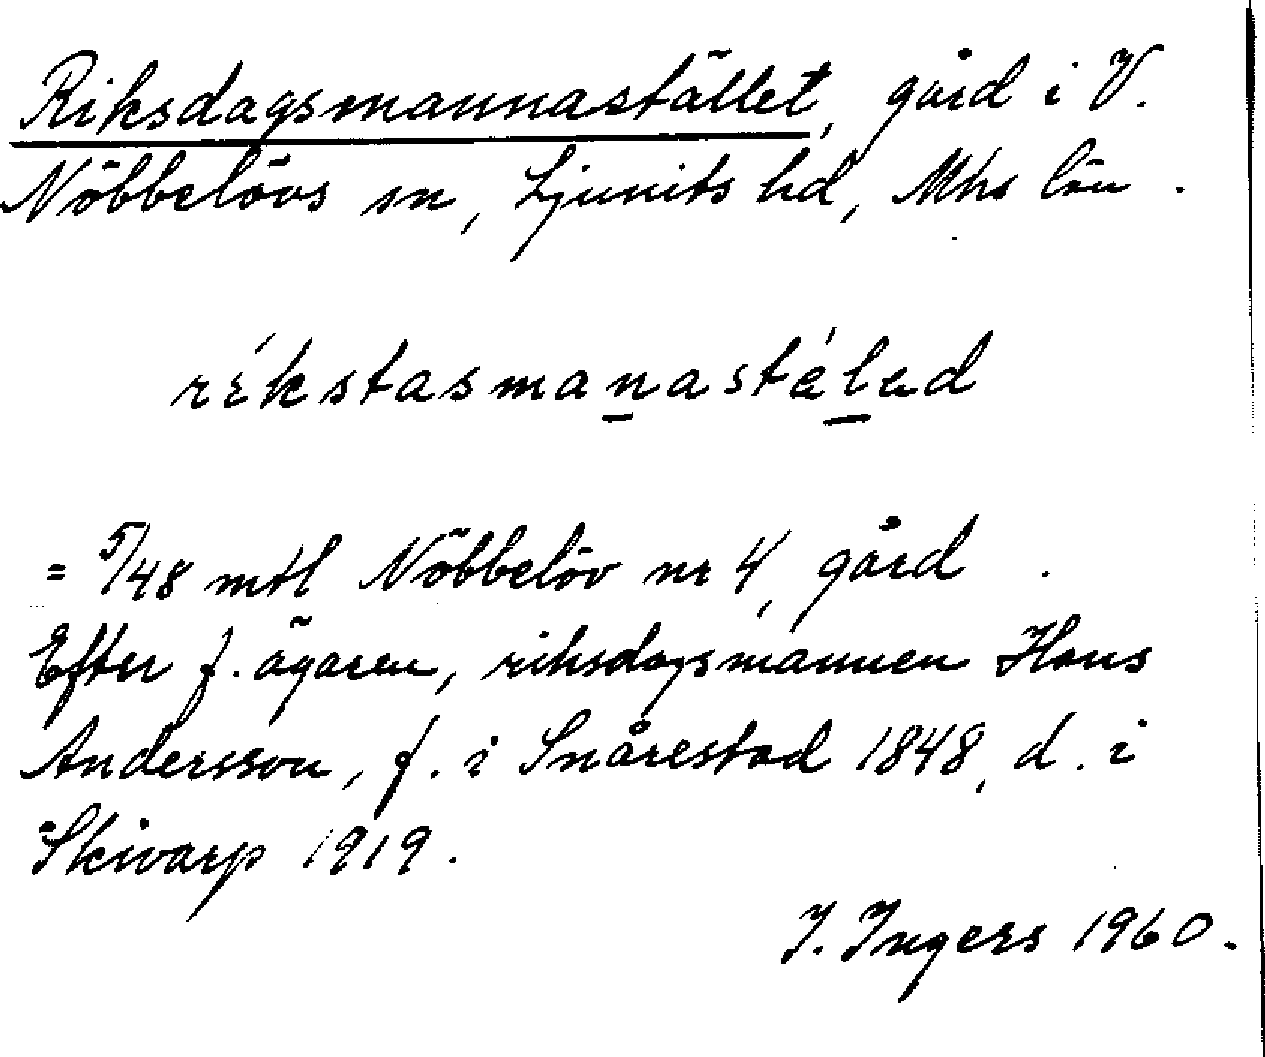 Riksdagsmannastället, gård i V.
Nöbbelövs sn, Ljunits hd, Mhs län.
rékstasmanastéled
= 5/48 mtl Nöbbelöv nr 4, gård.
Efter f. ägaren, riksdagsmannen Hans
Andersson, f. i Snårestad 1848, d. i
Skivarp 1919.
I. Ingers 1960.